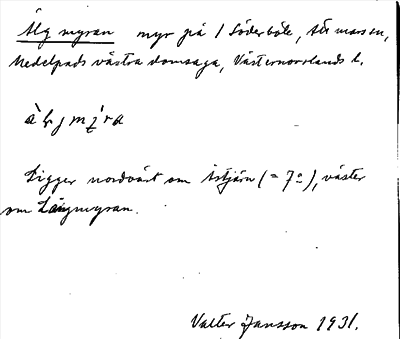 Älgmyran myr på 1 Söderböle, Attmars sn,
Medelpads västra domsaga, Västernorrlands l.
Ligger nordväst om Åstjärn (= 7º), väster
om Långmyran.
Valter Jansson 1931.